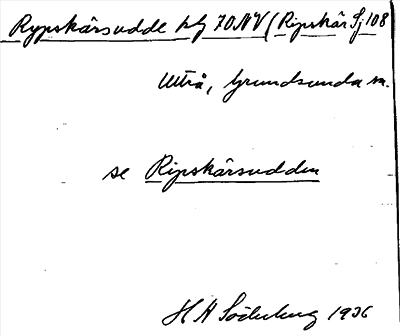 Rypskärsudde klg 70NV (Ripskär Sj 108
Utträ, Grundsunda sn.
se Ripskärsudden
H A Söderberg 1936